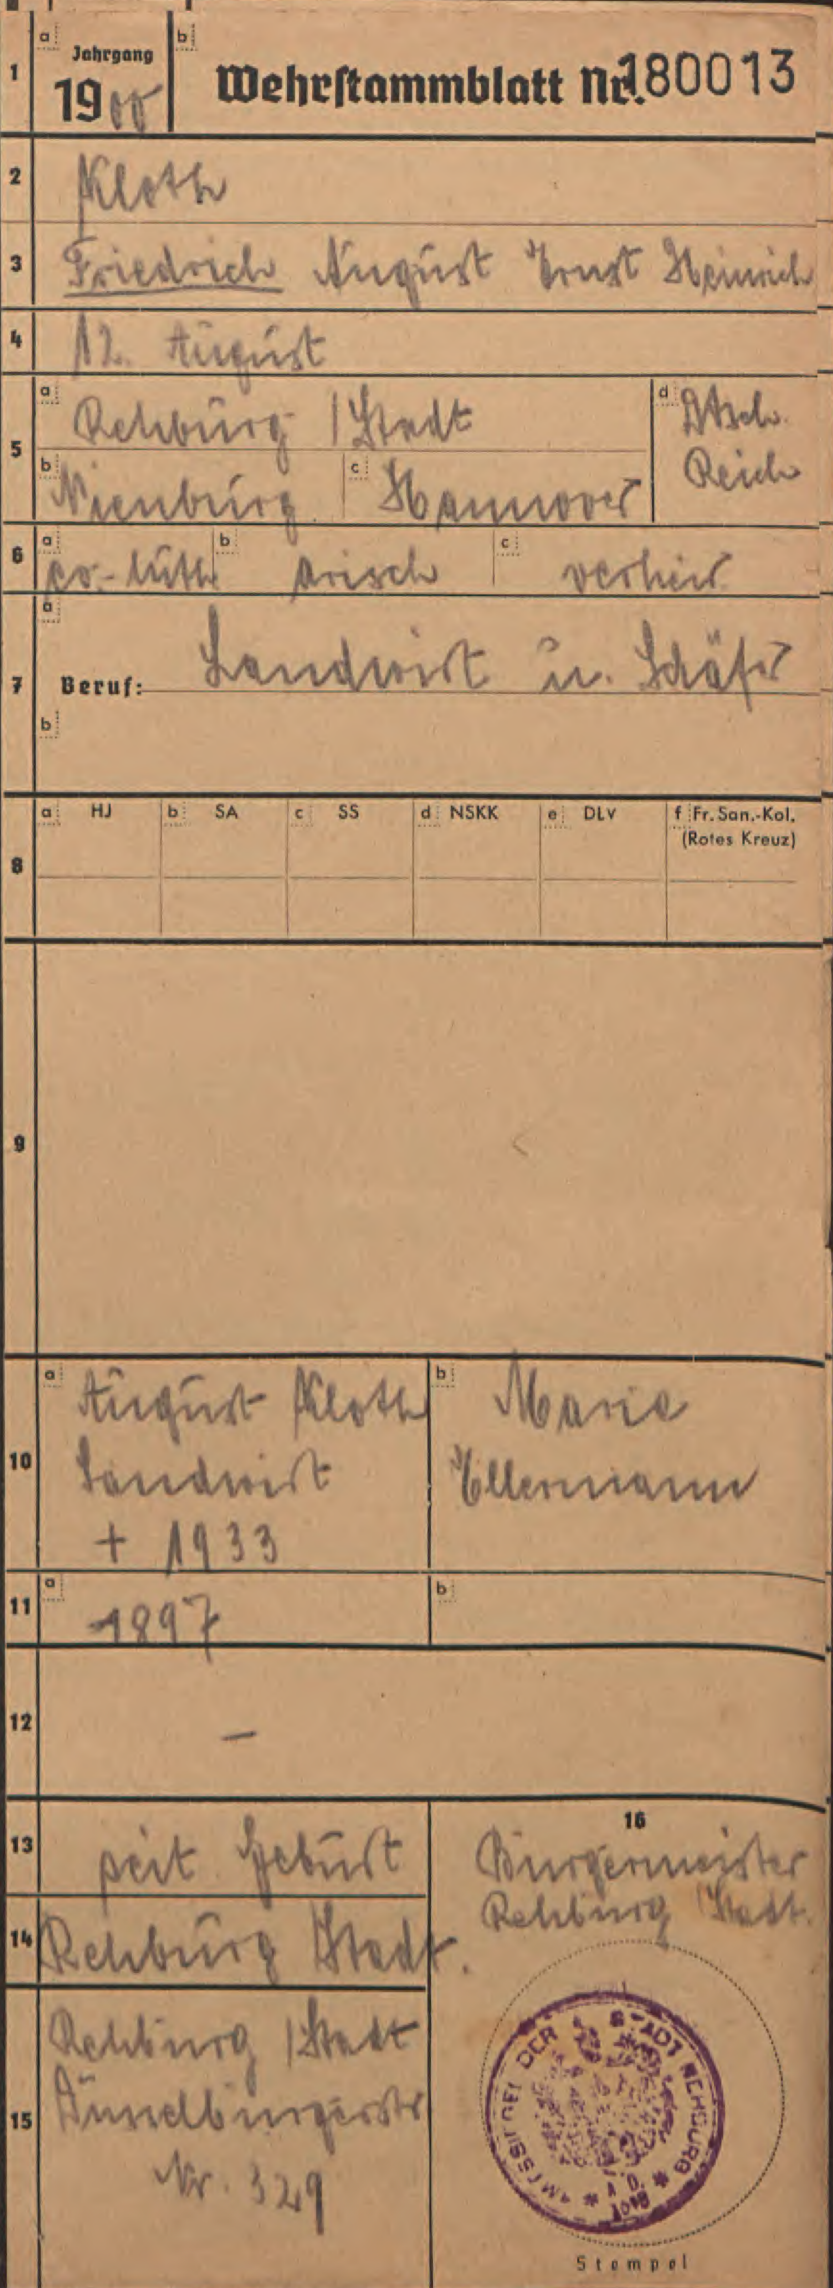 1
a
Jahrgang
1900
b
Wehrstammblatt Nr. 180013
2
Kloth
3
Friedrich August Ernst Heinrich
4
12. August
5
a
Rehburg /Stadt
b
Nienburg
c
Hannover
d
Dtsch.
Reich
6
a
ev.-luth
b
arisch
c
verheir.
7
a
Beruf: Landwirt u. Schäfer
b
8
a HJ
b SA
c SS
d NSKK
e DLV
f Fr. San.-Kol.
(Rotes Kreuz)
9
10
a
August Kloth
Landwirt
+ 1933
b
Marie
Ellermann
11
a
1897
b
12
–
13
seit Geburt
14
Rehburg Stadt.
15
Rehburg /Stadt
Nr. 329
16
Bürgermeister
Rehburg Stadt.
AMTSSIEGEL DER STADT REHBURG
Stempel